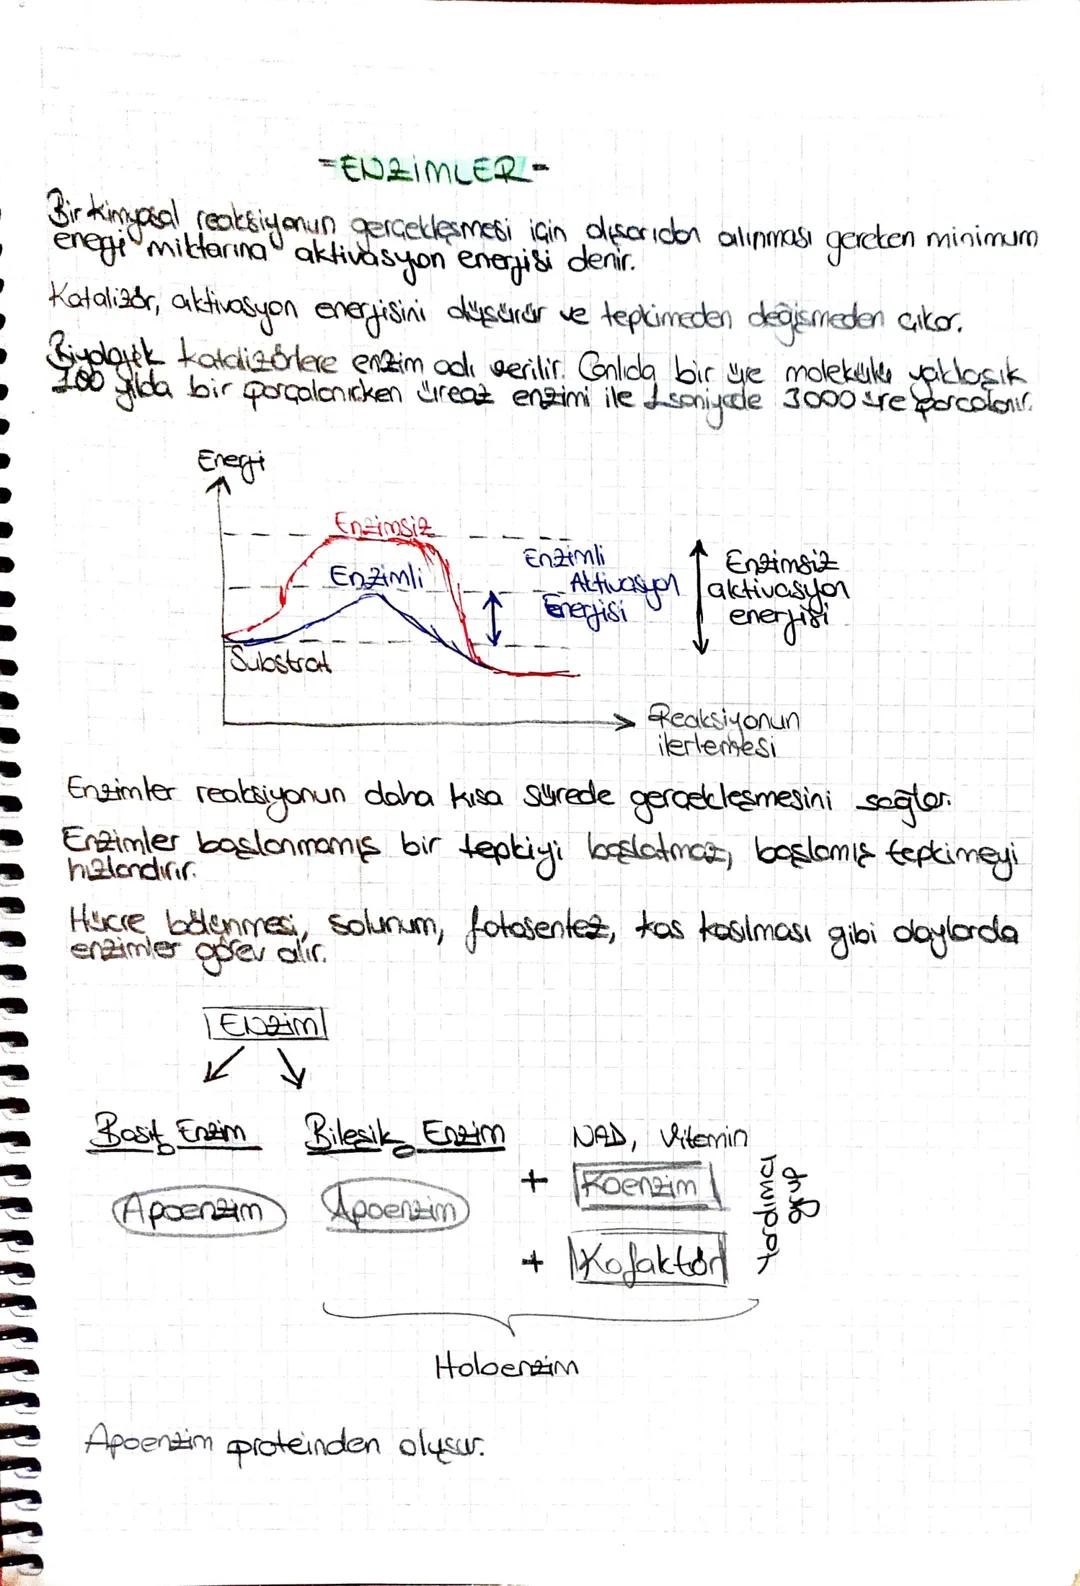 =ENZİMLER=
Bir kimyasal reaksiyonun gerçekleşmesi için dışarıdan alınması gereken minimum
enerji miktarına aktivasyon energisi denir.
Katalizör, aktivasyon energisini düşürür ve tepkimeden değişmeden çıkar.
Biyolojik katalizörlere enzim adı verilir. Canlıda bir üre molekülü yaklaşık
100 yılda bir parçalanırken üreaz enzimi ile 1 saniyede 3000 üre parçalanır.
Energi
Enzimsiz
Enzimli
Substrat
Enzimli
Aktivasyon
Energisi
Enzimsiz
aktivasyon
energisi
Reaksiyonun
ilerlemesi
Enzimler reaksiyonun daha kısa sürede gerçekleşmesini sağlar.
Enzimler başlanmamış bir tepkiyi başlatmaz, başlamış tepkimeyi
hızlandırır.
Hücre bölünmesi, solunum, fotosentez, kas kasılması gibi olaylarda
enzimler görev alır.
Enzim
Basit Enzim
Bileşik Enzim
NAD, Vitamin
Apoenzim
Apoenzim
+ Koenzim
+ Kofaktör
Yardımcı
grup
Holoenzim
Apoenzim proteinden oluşur.